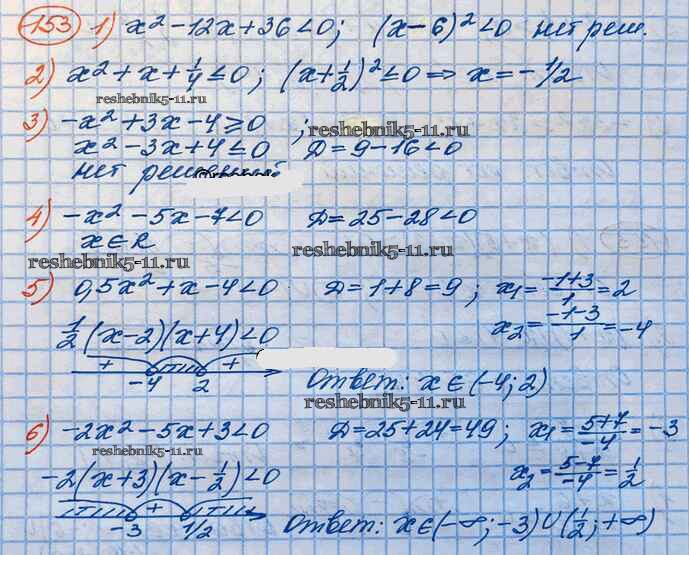 153 1) x² - 12x + 36 < 0; (x - 6)² < 0 нет реш.
2) x² + x + 1/4 ≤ 0; (x + 1/2)² ≤ 0 => x = -1/2
reshebnik5-11.ru
3) -x² + 3x - 4 ≥ 0 ;
reshebnik5-11.ru
x² - 3x + 4 ≤ 0 Д = 9 - 16 < 0
нет решений
4) -x² - 5x - 7 < 0 Д = 25 - 28 < 0
x ∈ R
reshebnik5-11.ru reshebnik5-11.ru
5) 0,5x² + x - 4 < 0 Д = 1 + 8 = 9 ; x₁ = (-1+3)/1 = 2
x₂ = (-1-3)/1 = -4
1/2 (x - 2)(x + 4) < 0
+ +
-4 2
Ответ: x ∈ (-4; 2)
reshebnik5-11.ru
6) -2x² - 5x + 3 < 0 Д = 25 + 24 = 49 ; x₁ = (5+7)/-4 = -3
reshebnik5-11.ru
x₂ = (5-7)/-4 = 1/2
-2(x + 3)(x - 1/2) < 0
+
-3 1/2
reshebnik5-11.ru
Ответ: x ∈ (-∞; -3) ∪ (1/2; +∞)